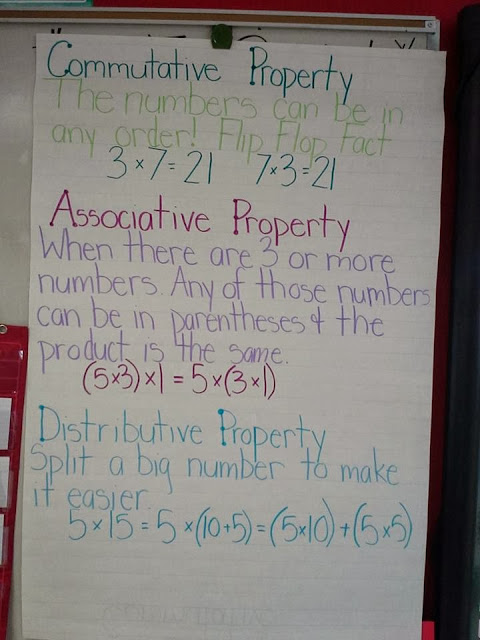 Commutative Property
The numbers can be in
any order! Flip Flop Fact
3×7=21 7×3=21
Associative Property
When there are 3 or more
numbers. Any of those numbers
can be in parentheses & the
product is the same.
(5×3)×1 = 5×(3×1)
Distributive Property
Split a big number to make
it easier.
5×15 = 5×(10+5)=(5×10)+(5×5)
Commutative